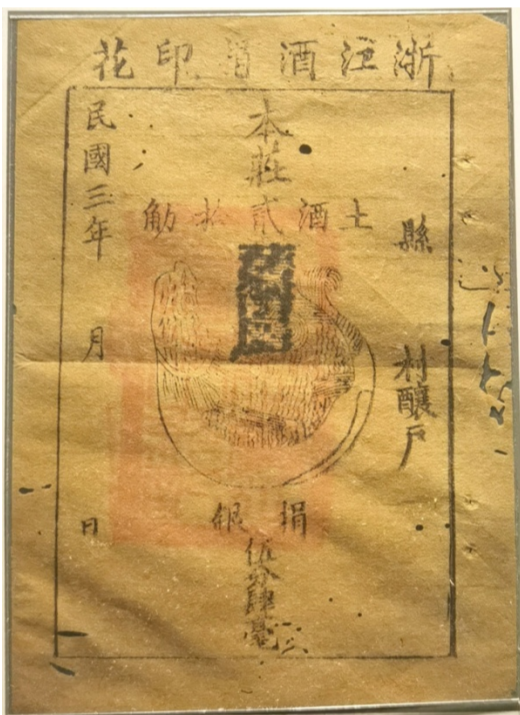 浙江酒捐印花
縣 村釀戶
本莊
土酒貳拾觔
捐銀
伍分肆毫
民國三年 月 日